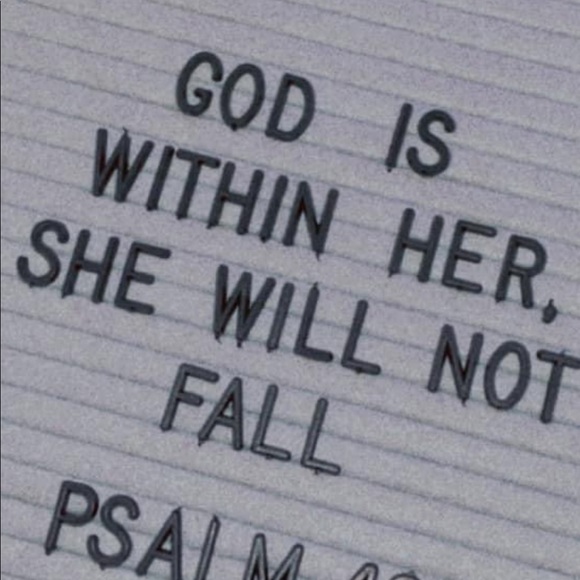 GOD IS
WITHIN HER,
SHE WILL NOT
FALL
PSALM